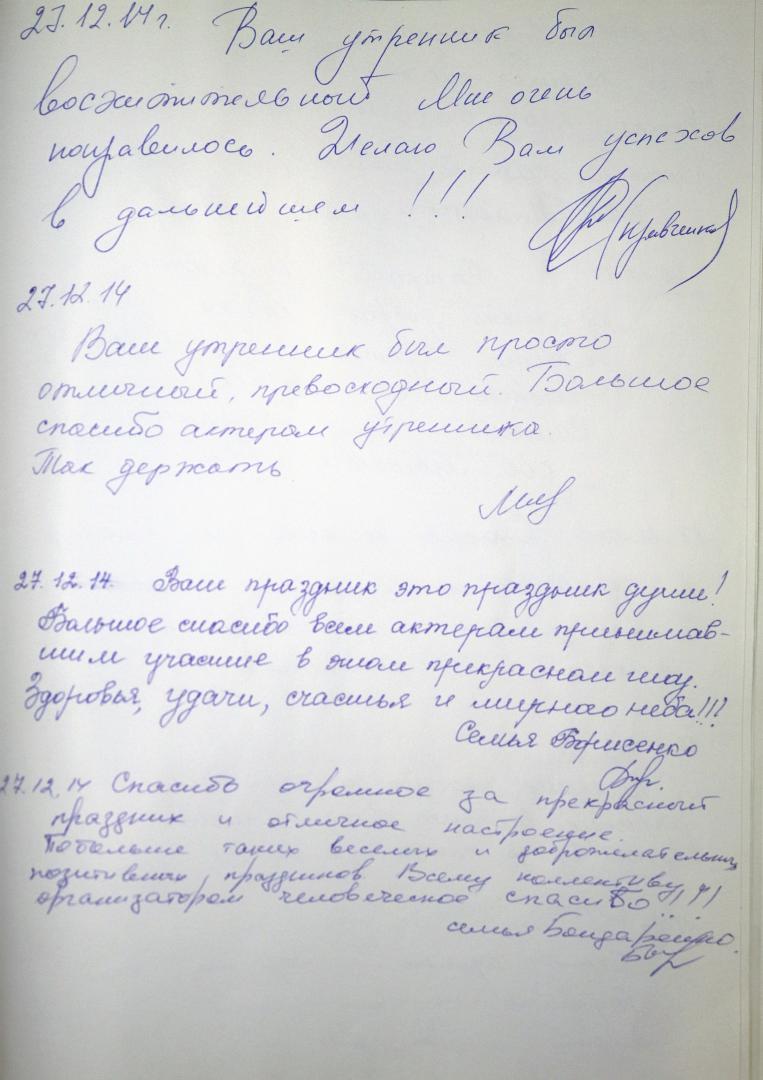 27.12.14г. Ваш утренник был
восхитительный Мне очень
понравилось. Желаю Вам успехов
в дальнейшем !!!
27.12.14
Ваш утренник был просто
отличный, превосходный. Большое
спасибо актерам утренника.
Так держать
27.12.14 Ваш праздник это праздник души!
Большое спасибо всем актерам принимав-
шим участие в этом прекрасном шоу.
Здоровья, удачи, счастья и мирного неба!!!
Семья Борисенко
27.12.14 Спасибо огромное за прекрасный
праздник и отличное настроение.
Побольше таких веселых и доброжелательных,
позитивных праздников Всему коллективу,
организаторам человеческое спасибо!!!
семья Бондаренко.